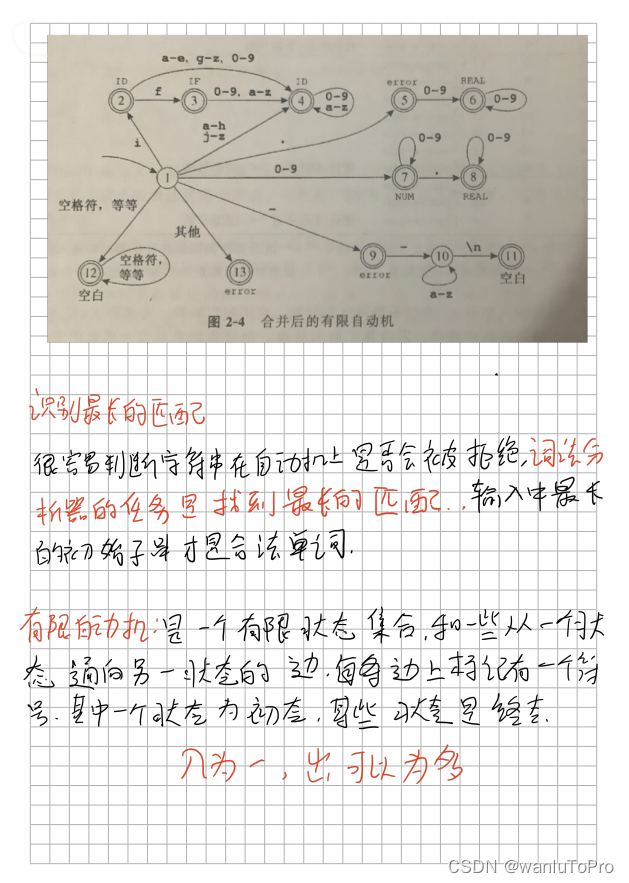 a-e, g-z, 0-9
ID
IF
ID
error
REAL
2
f
3
0-9, a-z
4
0-9
a-z
5
0-9
6
0-9
i
a-h
j-z
.
0-9
0-9
1
0-9
7
.
8
NUM
REAL
空格符，等等
其他
-
9
-
10
\n
11
12
空格符，
等等
13
error
空白
error
a-z
空白
图 2-4 合并后的有限自动机
识别最长的匹配
很容易判断字符串在自动机上是否会被拒绝,词法分
析器的任务是找到最长的匹配..输入中最长
的初始子串才是合法单词.
有限自动机:是一个有限状态集合,和一些从一个状
态通向另一状态的边.每条边上标记有一个符
号.其中一个状态为初态,某些状态是终态.
入为一,出可以为多
CSDN @wanluToPro